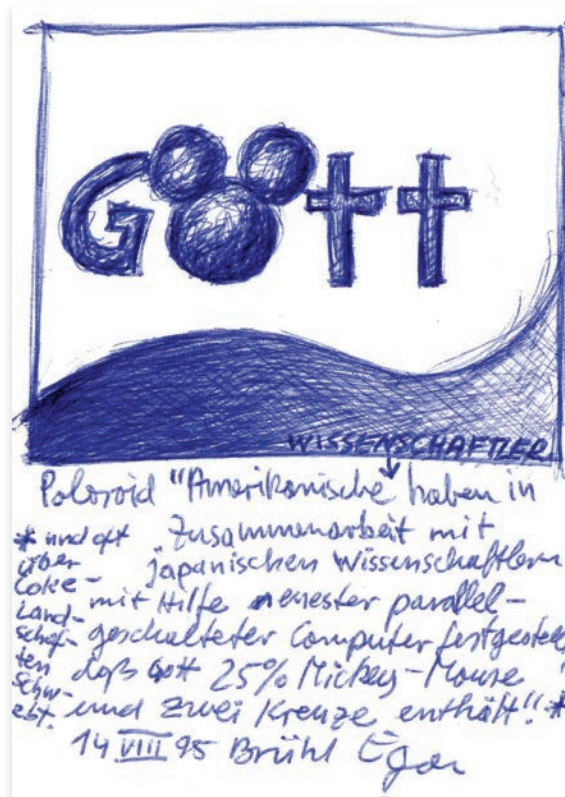 Gott
WISSENSCHAFTLER
Poloroid "Amerikanische haben in
Zusammenarbeit mit
japanischen Wissenschaftlern
mit Hilfe neuester parallel-
geschalteter Computer festgestellt,
daß Gott 25% Mickey-Mouse
und zwei Kreuze enthält!"*
* und oft
über
Coke-
Land-
schaf-
ten
schw-
ebt.
14 VIII 95 Brühl